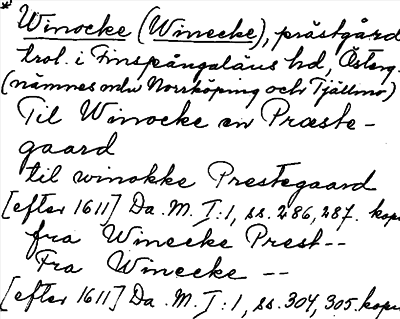 * Winocke (Winecke), prästgård
trol. i Finspångaläns hd, Österg.
(nämnes mlu Norrköping och Tjällmo)
Til Winocke en Præste-
gaard
til winokke Prestegaard
[efter 1611] Da. M. I:1, ss. 286, 287. kopi
fra Winecke Prest--
Fra Winecke --
[efter 1611] Da. M. I:1, ss. 304, 305. kopi